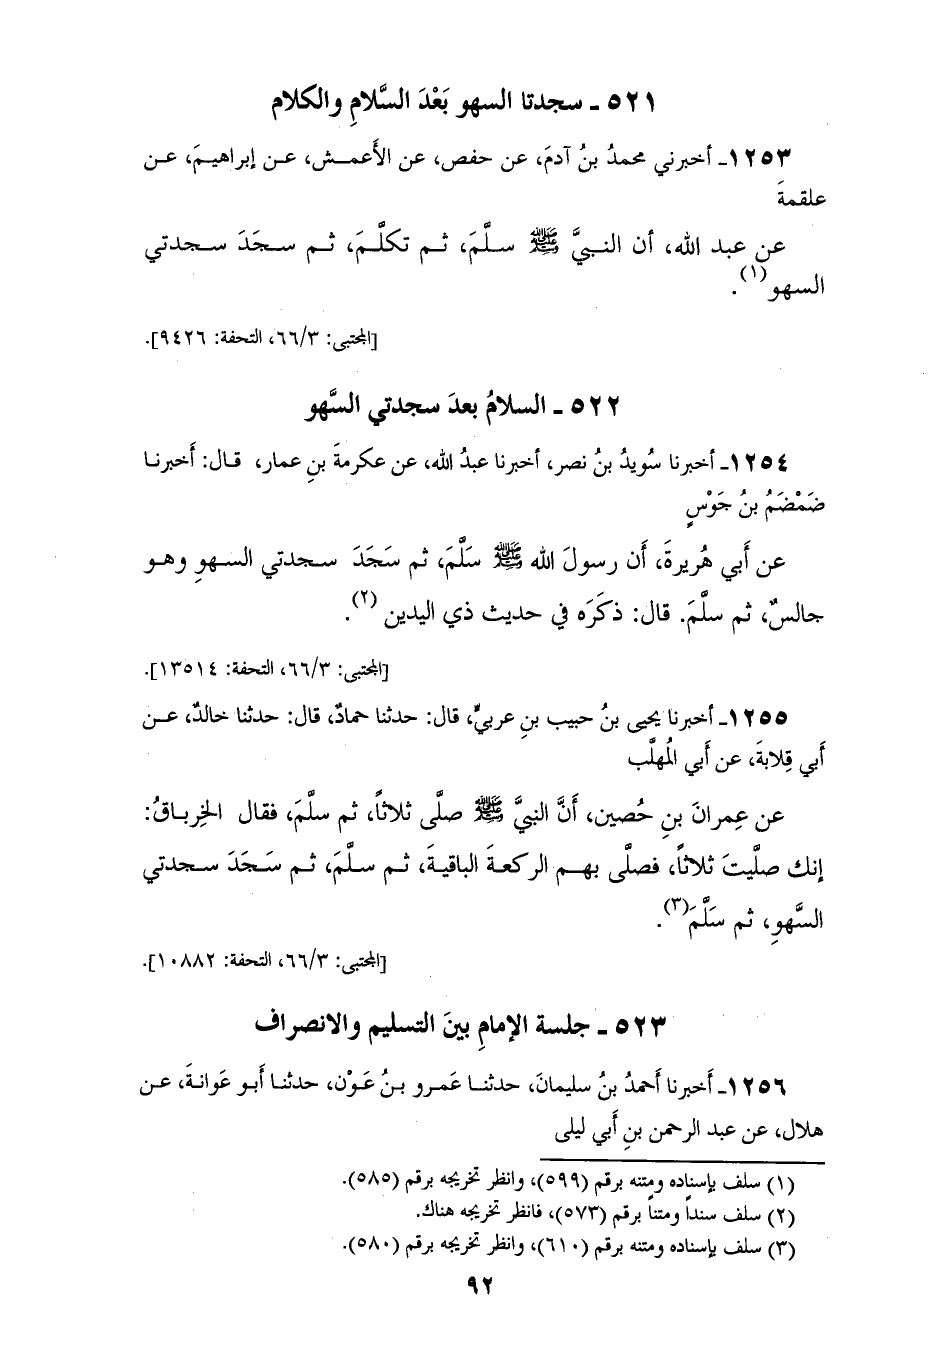 ٥٢١ ـ سجدتا السهو بَعْدَ السَّلامِ والكلام
١٢٥٣ـ أخبرني محمدُ بنُ آدمَ، عن حفص، عن الأعمش، عن إبراهيمَ، عن
علقمةَ
عن عبد الله، أن النبيَّ ﷺ سلَّمَ، ثم تكلَّمَ، ثم سجَدَ سجدتي
السهو(١).
[المجتبى: ٦٦/٣، التحفة: ٩٤٢٦].
٥٢٢ ـ السلامُ بعدَ سجدتي السَّهو
١٢٥٤ـ أخبرنا سُويدُ بنُ نصر، أخبرنا عبدُ الله، عن عكرمةَ بنِ عمار، قال: أخبرنا
ضَمْضَمُ بنُ جَوْسٍ
عن أبي هُريرةَ، أن رسولَ الله ﷺ سَلَّمَ، ثم سَجَدَ سجدتي السهوِ وهو
جالسٌ، ثم سلَّمَ. قال: ذكَرَه في حديث ذي اليدين (٢).
[المجتبى: ٦٦/٣، التحفة: ١٣٥١٤].
١٢٥٥ـ أخبرنا يحيى بنُ حبيب بنِ عربيٍّ، قال: حدثنا حمادٌ، قال: حدثنا خالدٌ، عن
أبي قِلابةَ، عن أبي المُهلَّب
عن عِمرانَ بنِ حُصين، أنَّ النبيَّ ﷺ صلَّى ثلاثاً، ثم سلَّمَ، فقال الخِرباقُ:
إنك صلَّيتَ ثلاثاً، فصلَّى بهم الركعةَ الباقيةَ، ثم سلَّمَ، ثم سَجَدَ سجدتي
السَّهوِ، ثم سَلَّمَ(٣).
[المجتبى: ٦٦/٣، التحفة: ١٠٨٨٢].
٥٢٣ ـ جلسة الإمامِ بينَ التسليم والانصراف
١٢٥٦ـ أخبرنا أحمدُ بنُ سليمانَ، حدثنا عَمرو بنُ عَوْن، حدثنا أبو عَوانةَ، عن
هلال، عن عبد الرحمن بنِ أبي ليلى
(١) سلف بإسناده ومتنه برقم (٥٩٩)، وانظر تخريجه برقم (٥٨٥).
(٢) سلف سنداً ومتناً برقم (٥٧٣)، فانظر تخريجه هناك.
(٣) سلف بإسناده ومتنه برقم (٦١٠)، وانظر تخريجه برقم (٥٨٠).
٩٢